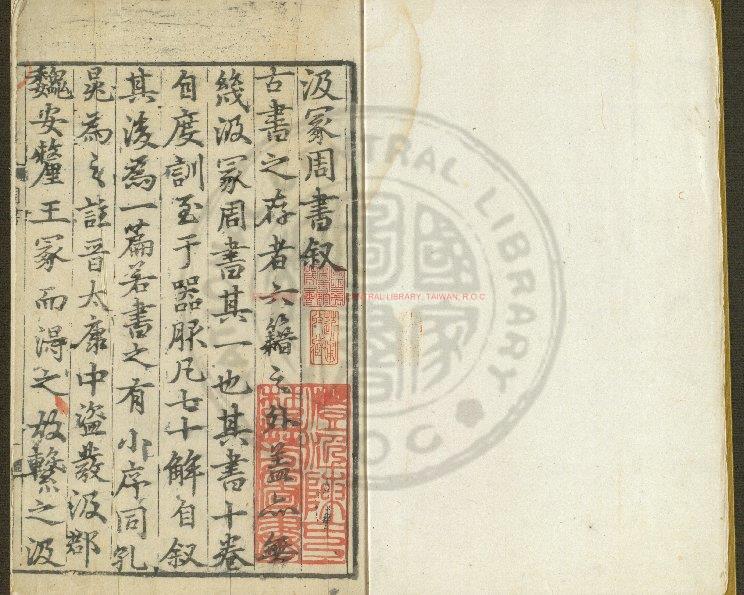 汲冢周書叙
古書之存者六籍之外蓋亦無
幾汲冢周書其一也其書十卷
自度訓至于器服凡七十解自叙
其後為一篇若書之有小序同孔
晁為之註晉太康中盜發汲郡
魏安釐王冢而得之故繫之汲
CENTRAL LIBRARY, TAIWAN, R.O.C